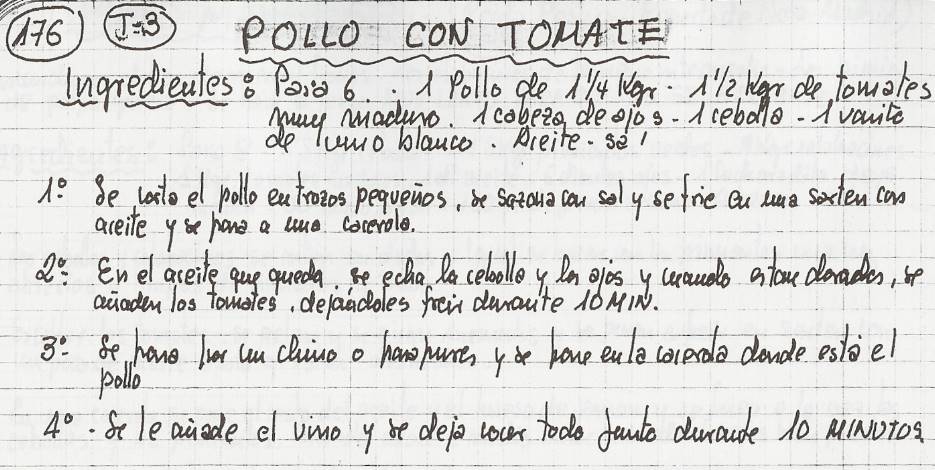 176 I=3 POLLO CON TOMATE
Ingredientes: Para 6. . 1 Pollo de 1 1/4 Kgr. - 1 1/2 Kgr de tomates
muy maduro. 1 cabeza de ajos - 1 cebolla - 1 vasito
de vino blanco. Aceite - sal
1º Se corta el pollo en trozos pequeños, se sazona con sal y se frie en una sarten con
aceite y se pasa a una cacerola.
2º- En el aceite que queda, se echa la cebolla y los ajos y cuando estan dorados, se
añaden los tomates, dejándoles freir durante 10 MIN.
3º- Se pasa por un chino o pasapures y se pone en la cacerola donde está el
pollo
4º - Se le añade el vino y se deja cocer todo junto durante 10 MINUTOS